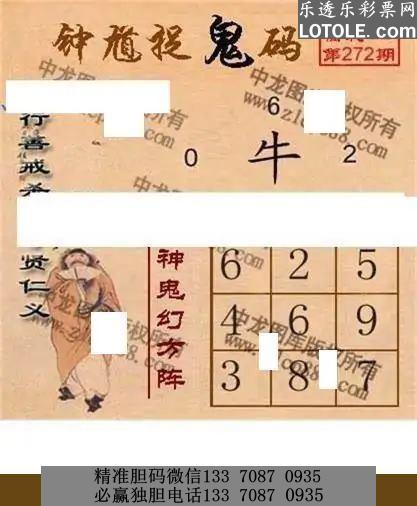 乐透乐彩票网
LOTOLE.COM
钟馗捉鬼码
第272期
6
0 牛 2
行善戒
贤仁义
神鬼幻方阵
6 2 5
4 6 9
3 8 7
中龙图库版权所有
精准胆码微信133 7087 0935
必赢独胆电话133 7087 0935